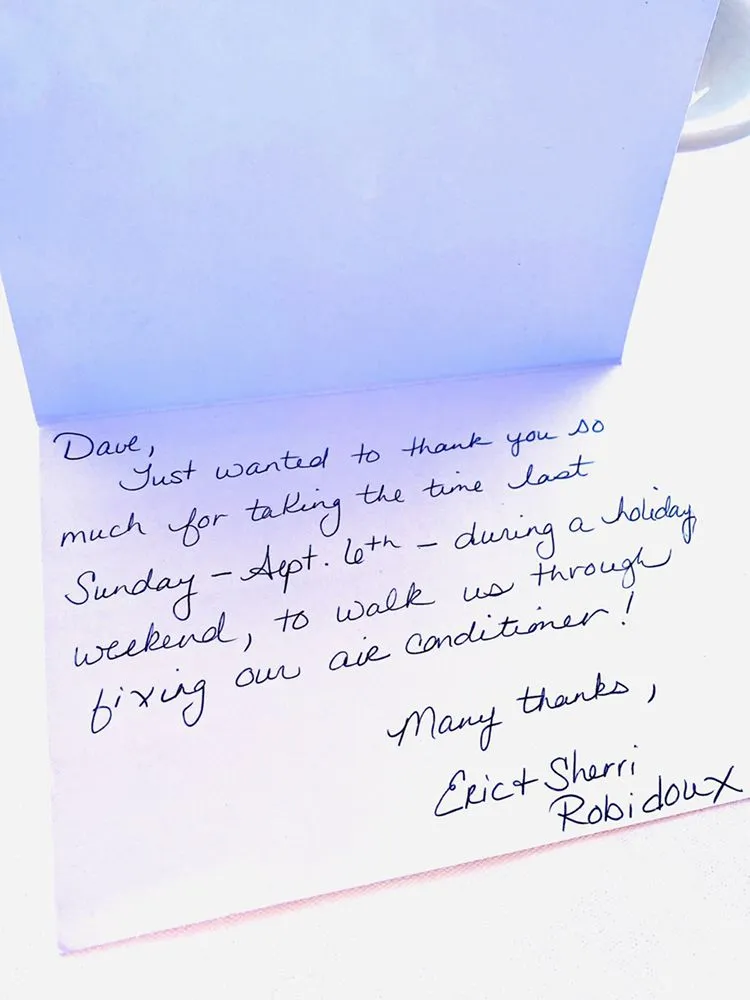 Dave,
Just wanted to thank you so
much for taking the time last
Sunday - Sept. 6th - during a holiday
weekend, to walk us through
fixing our air conditioner!
Many thanks,
Eric + Sherri
Robidoux